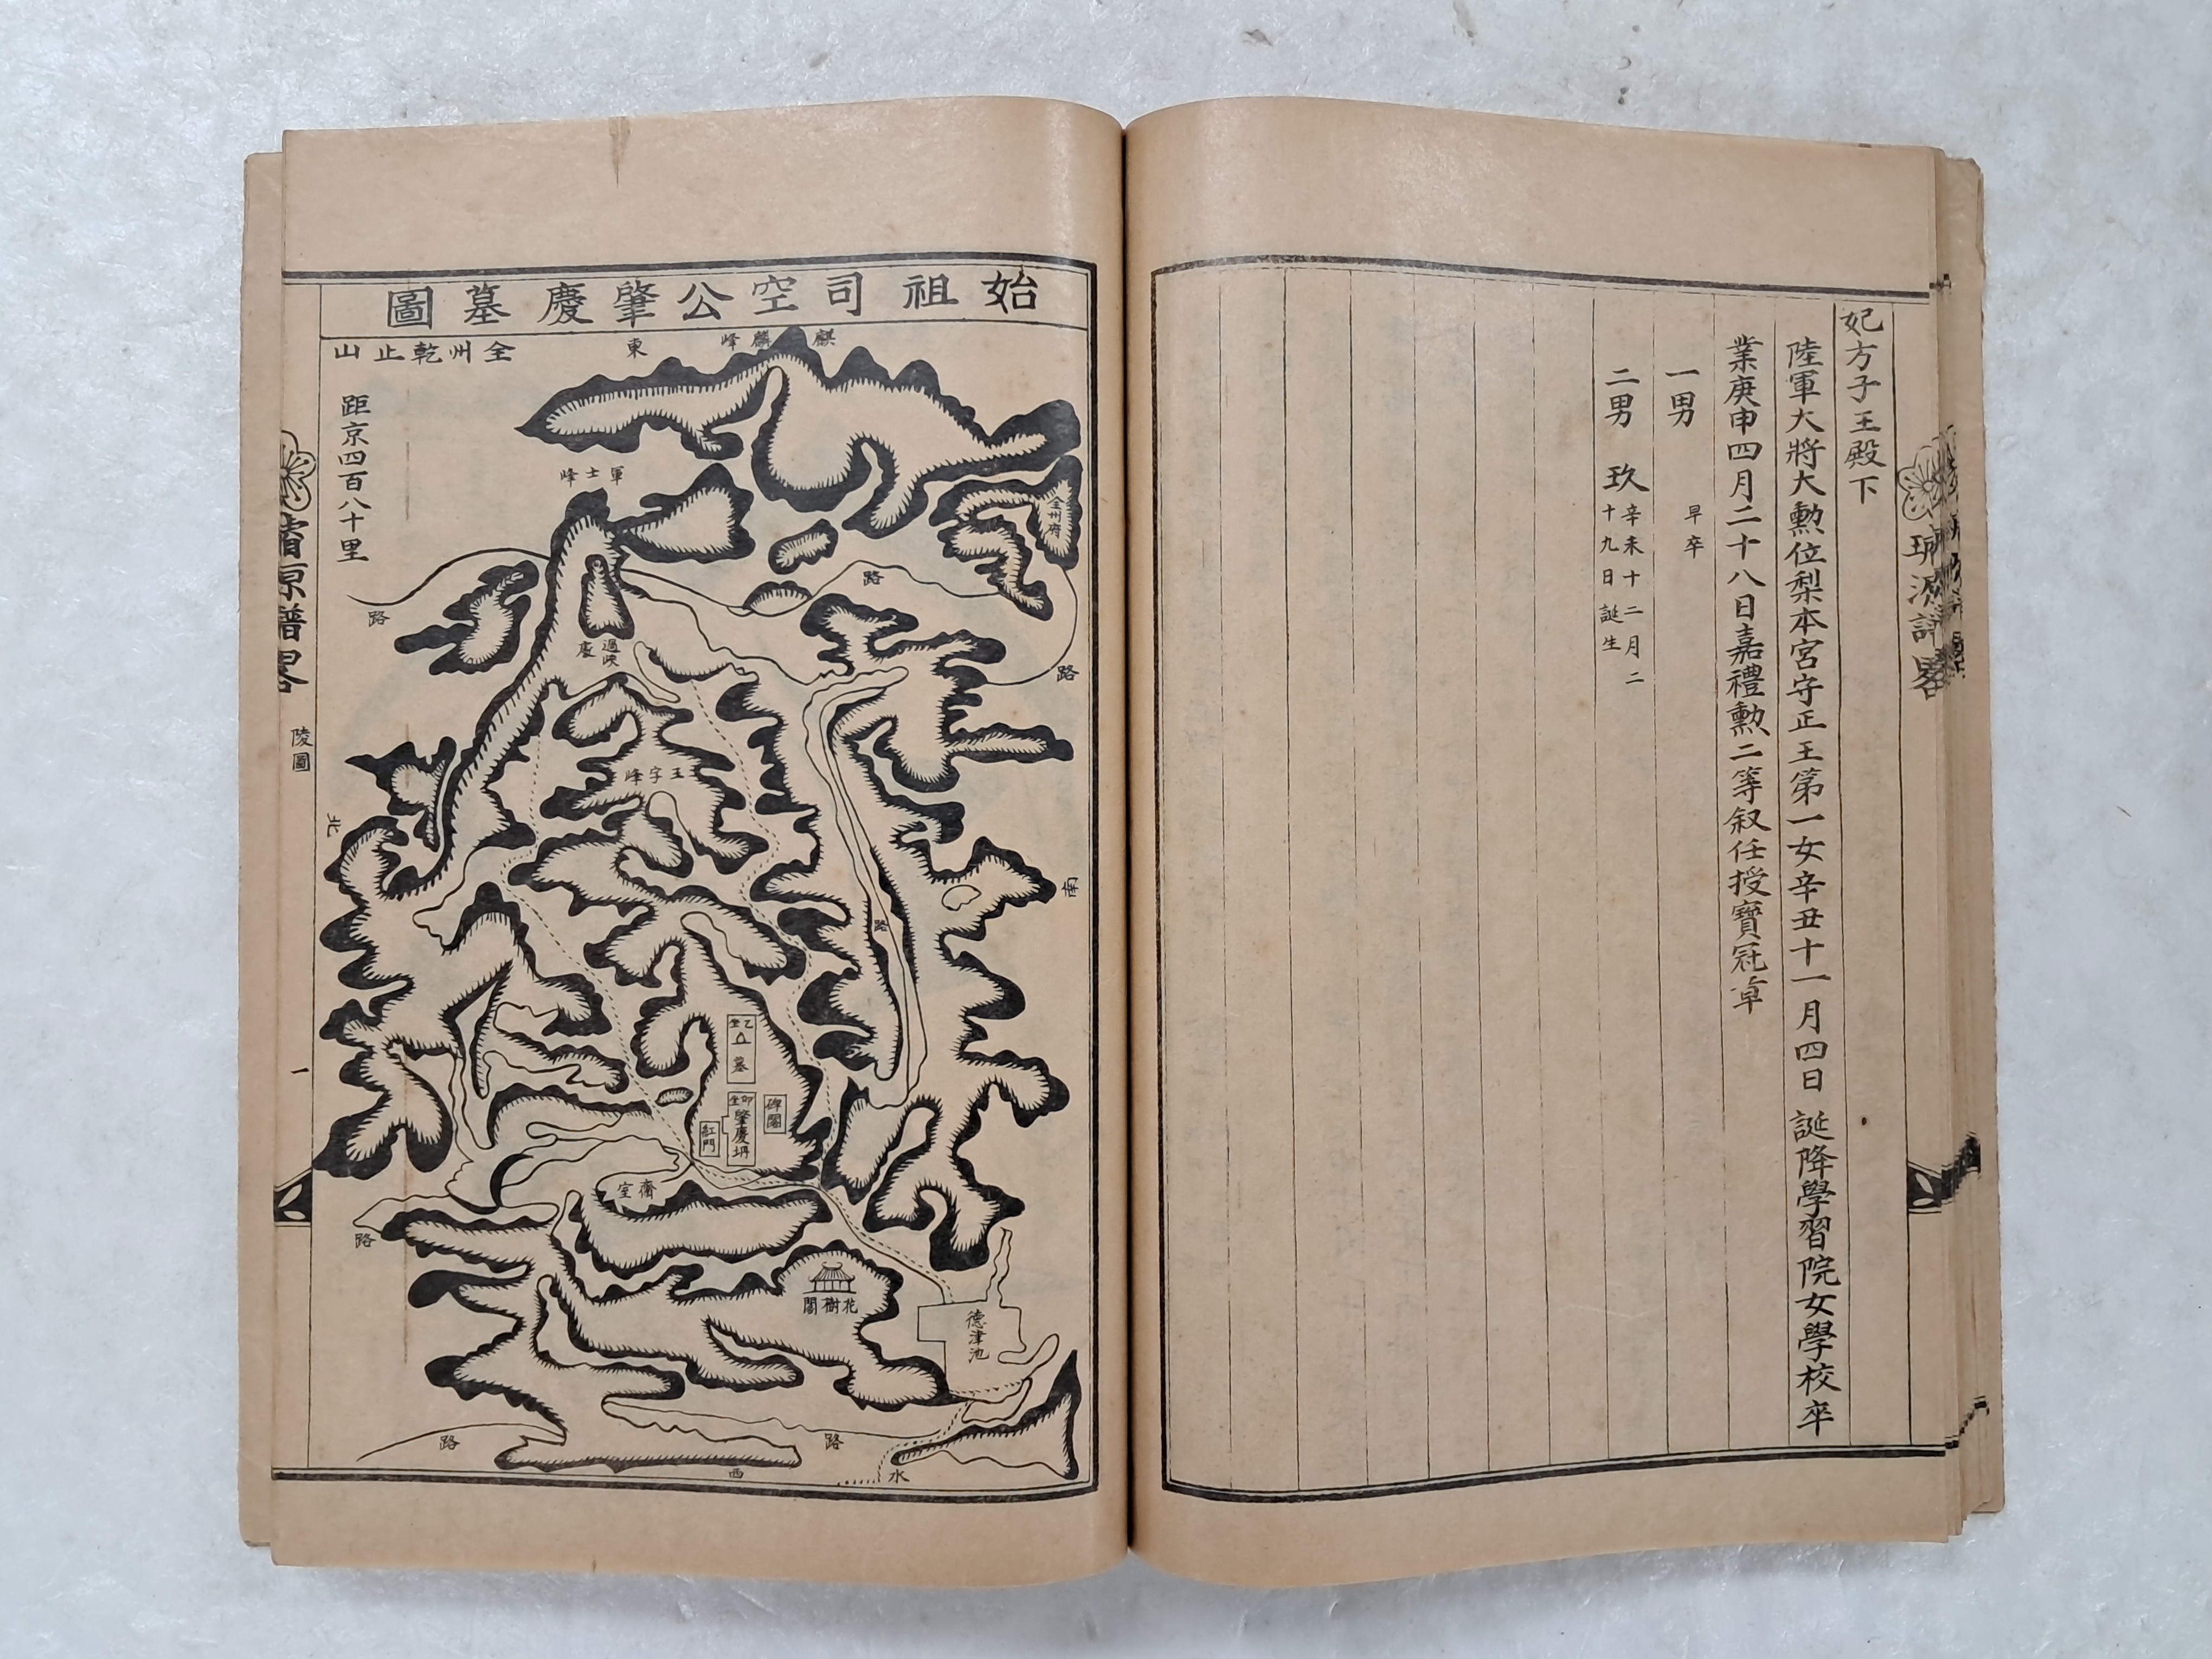 妃方子王殿下
陸軍大將大勲位梨本宮守正王第一女辛丑十一月四日誕降學習院女學校卒
業庚申四月二十八日嘉禮勲二等叙任授寶冠章
一男 早卒
二男 玖 辛未十二月二
十九日誕生
璿源譜畧
始祖司空公肇慶墓圖
全州乾止山
距京四百八十里
東
麒麟峰
軍士峰
全州府
路
路
路
過峽
處
王字峰
北
南
路
乙坐
墓
卯坐
肇慶坍
碑閣
紅門
齋室
路
花樹閣
德津池
路
路
西
水
璿源譜畧
陵圖
一